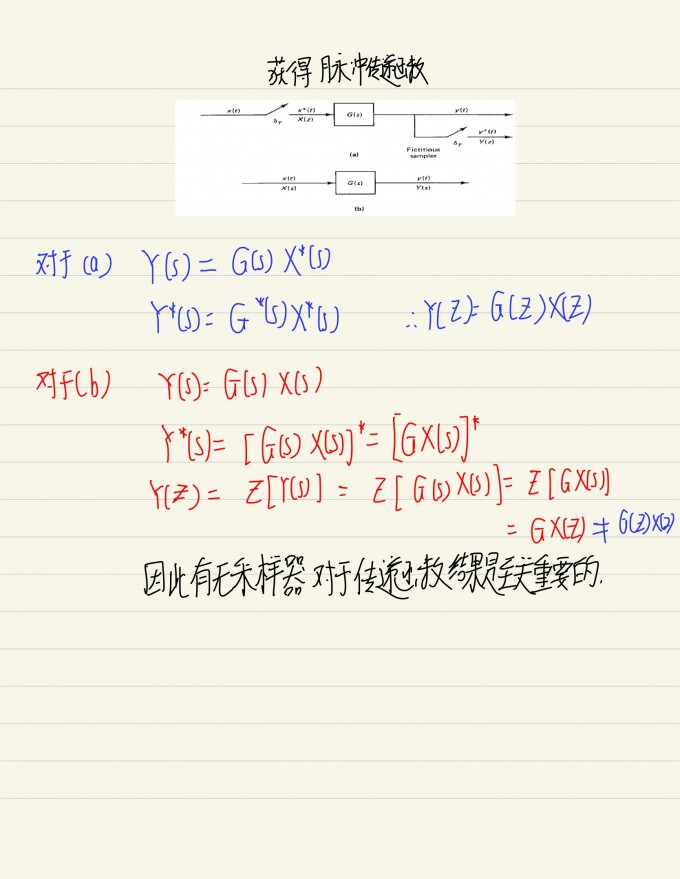 获得脉冲传递函数
x(t) δT x*(t) X(z) G(s) y(t)
δT y*(t) Y(z)
Fictitious sampler
(a)
x(t) X(s) G(s) y(t) Y(s)
(b)
对于(a) Y(s) = G(s) X*(s)
Y*(s) = G*(s)X*(s) ∴Y(Z)= G(Z)X(Z)
对于(b) Y(s)= G(s) X(s)
Y*(s)= [G(s) X(s)]* = [GX(s)]*
Y(Z) = Z[Y(s)] = Z[G(s)X(s)]= Z[GX(s)]
= GX(Z) ≠ G(Z)X(Z)
因此有无采样器对于传递函数结果是至关重要的.